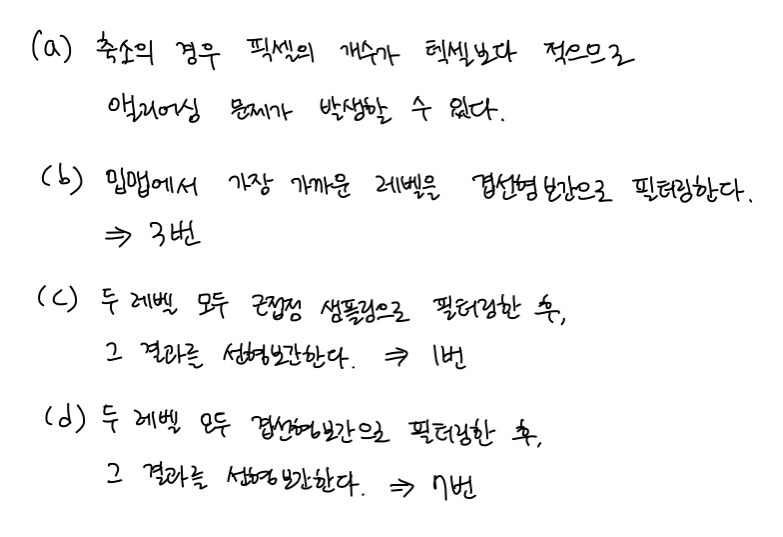 (a) 축소의 경우 픽셀의 개수가 텍셀보다 적으므로
앨리어싱 문제가 발생할 수 있다.
(b) 밉맵에서 가장 가까운 레벨을 겹선형보간으로 필터링한다.
⇒ 3번
(c) 두 레벨 모두 근접점 샘플링으로 필터링한 후,
그 결과를 선형보간한다. ⇒ 1번
(d) 두 레벨 모두 겹선형보간으로 필터링한 후,
그 결과를 선형보간한다. ⇒ 7번